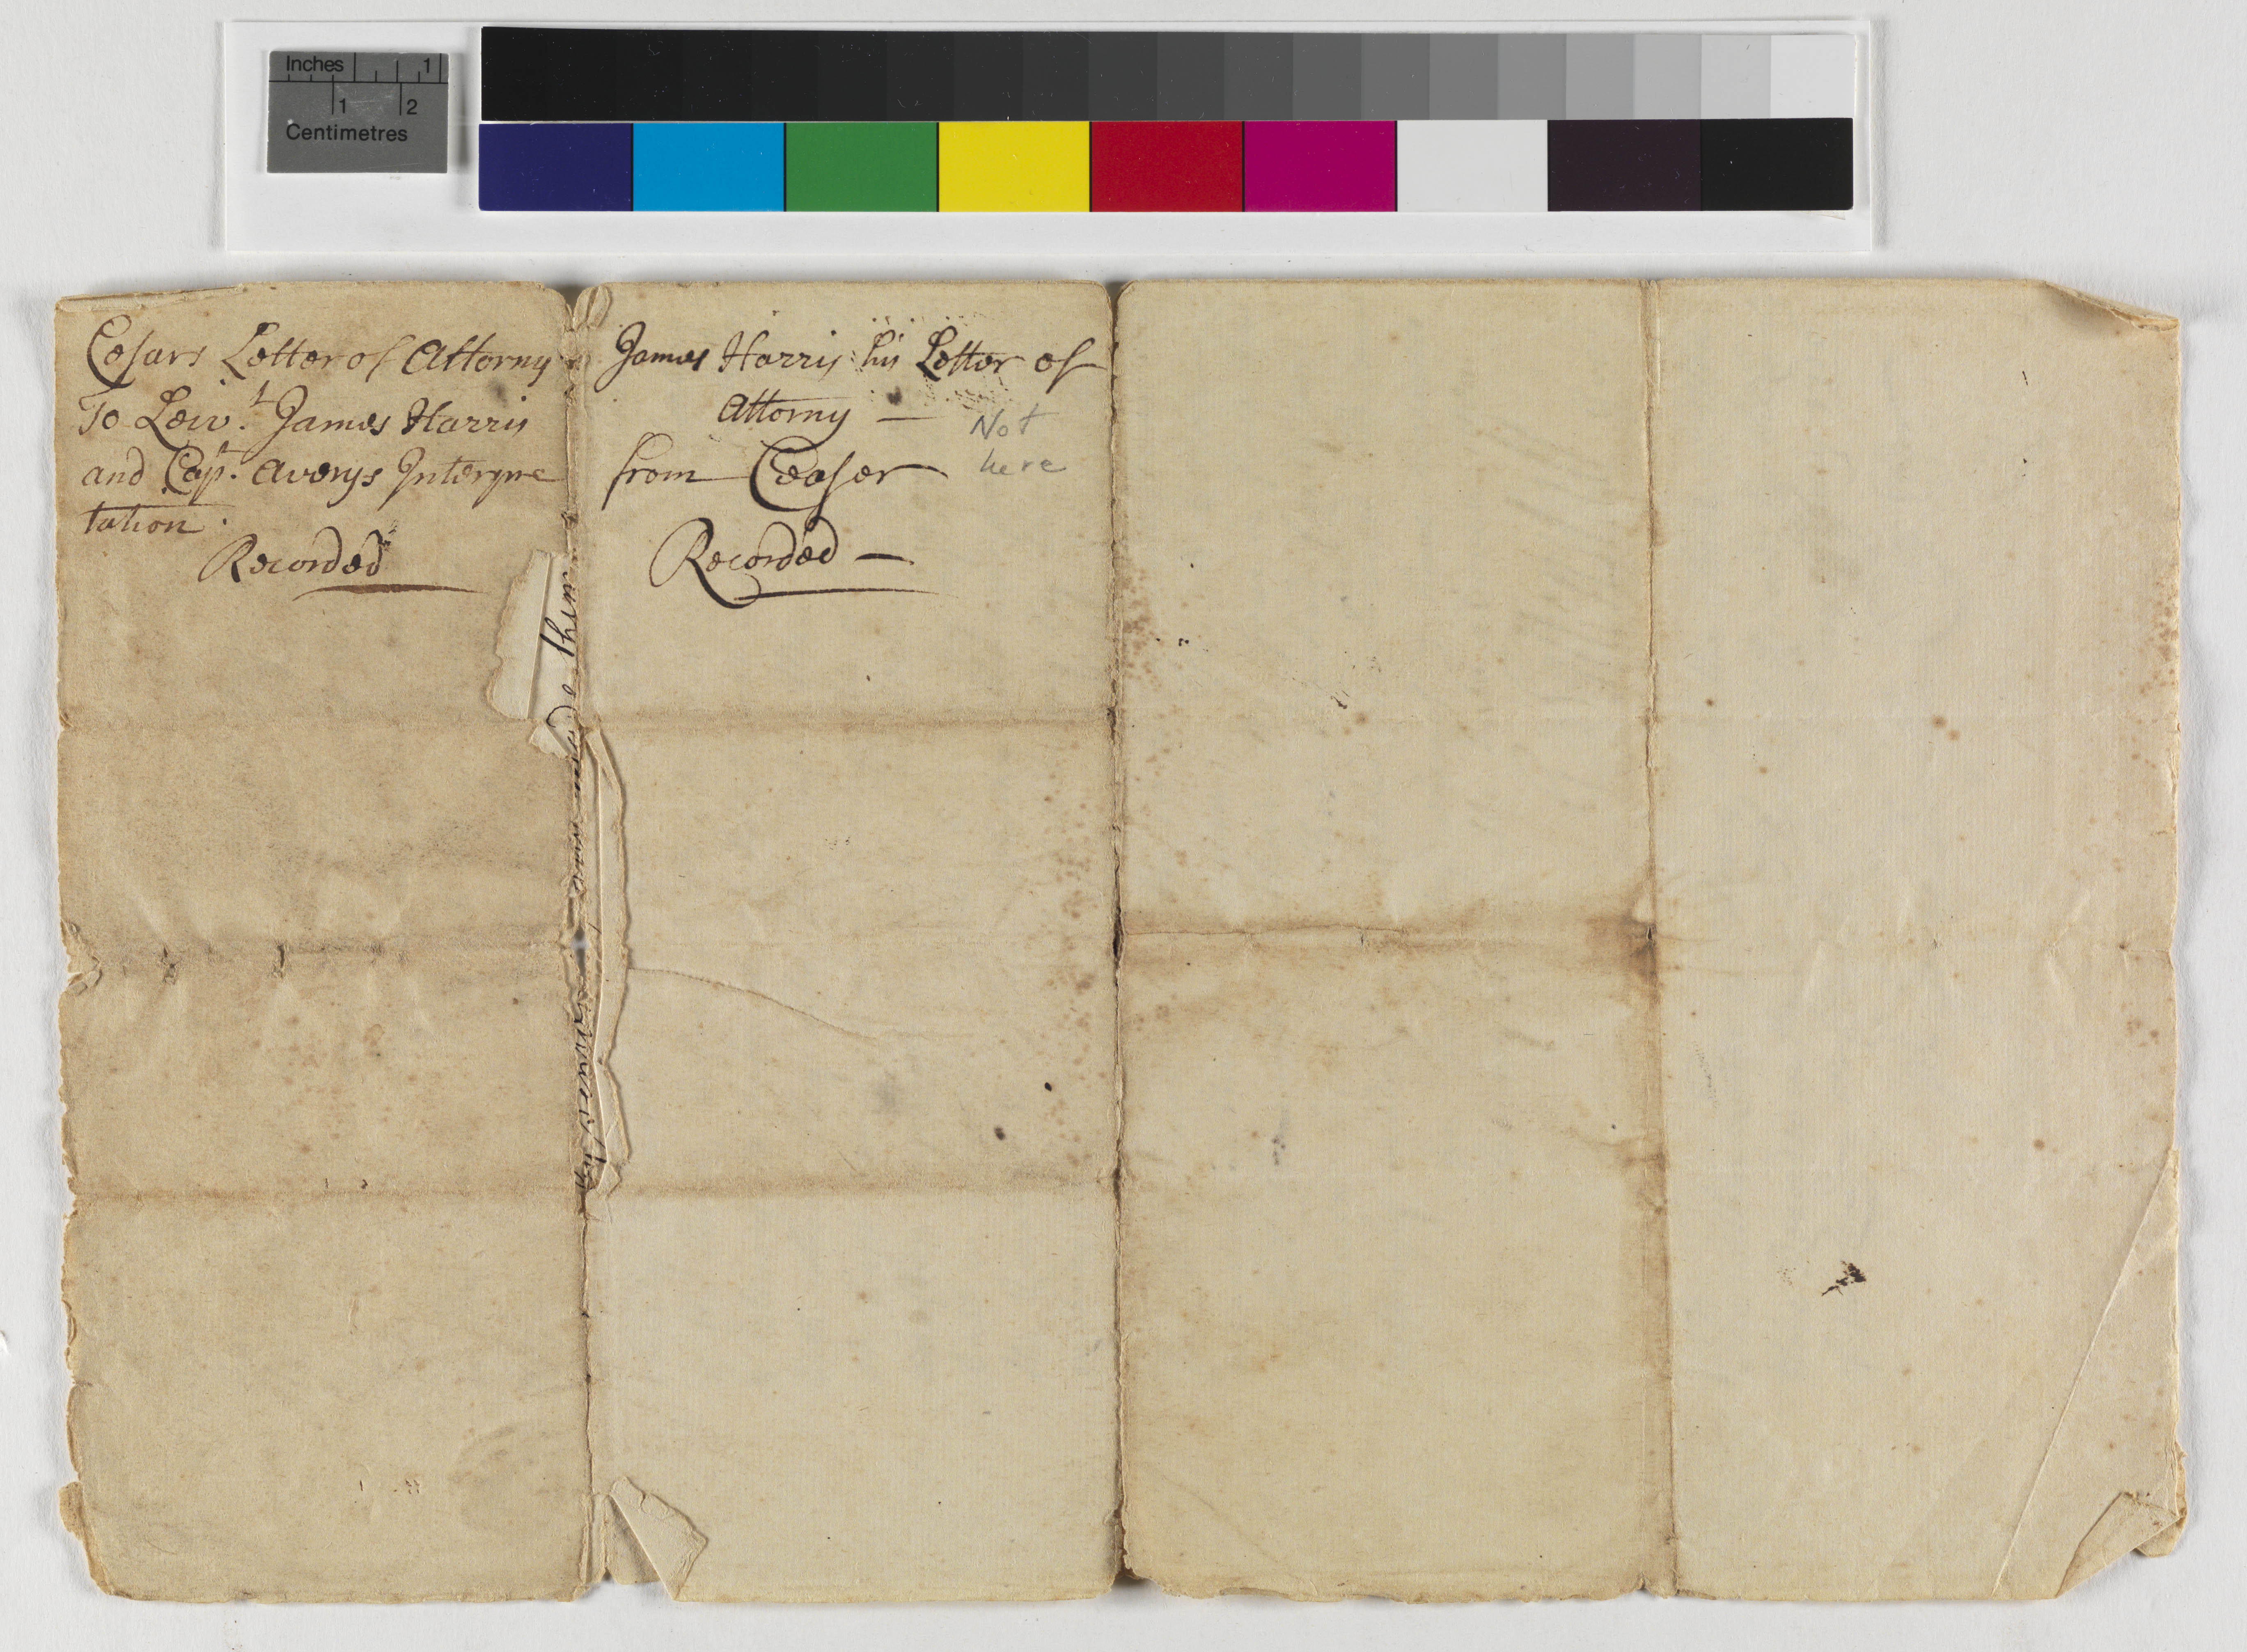 Inches 1
1 2
Centimetres
Cesars Letter of Attorny
To Leiv.t James Harris
and Capt. Averys Interpre
tation.
Recorded
James Harris his Letter of
Attorny —
from Ceaser
Recorded —
Not
here
them